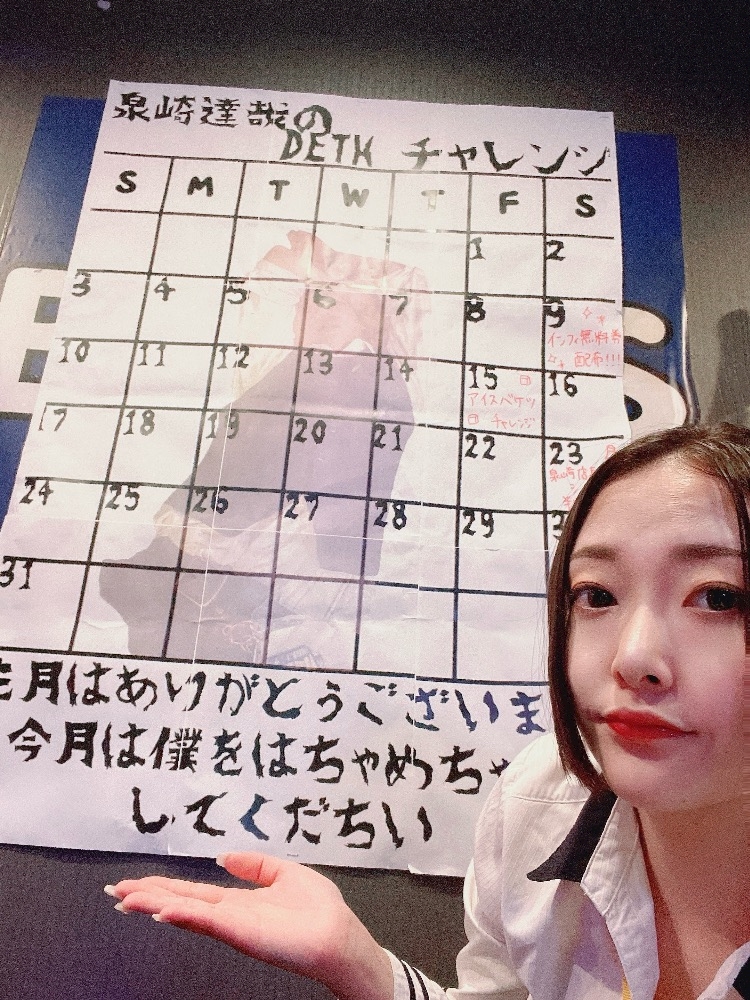 泉崎達哉の
DETH チャレンジ
S M T W T F S
1 2
3 4 5 6 7 8 9
インフィ無料券
配布!!!
10 11 12 13 14 15 16
アイスバケツ
チャレンジ
17 18 19 20 21 22 23
泉崎店
24 25 26 27 28 29
31
月はありがとうございま
今月は僕をはちゃめちゃ
してくだちい